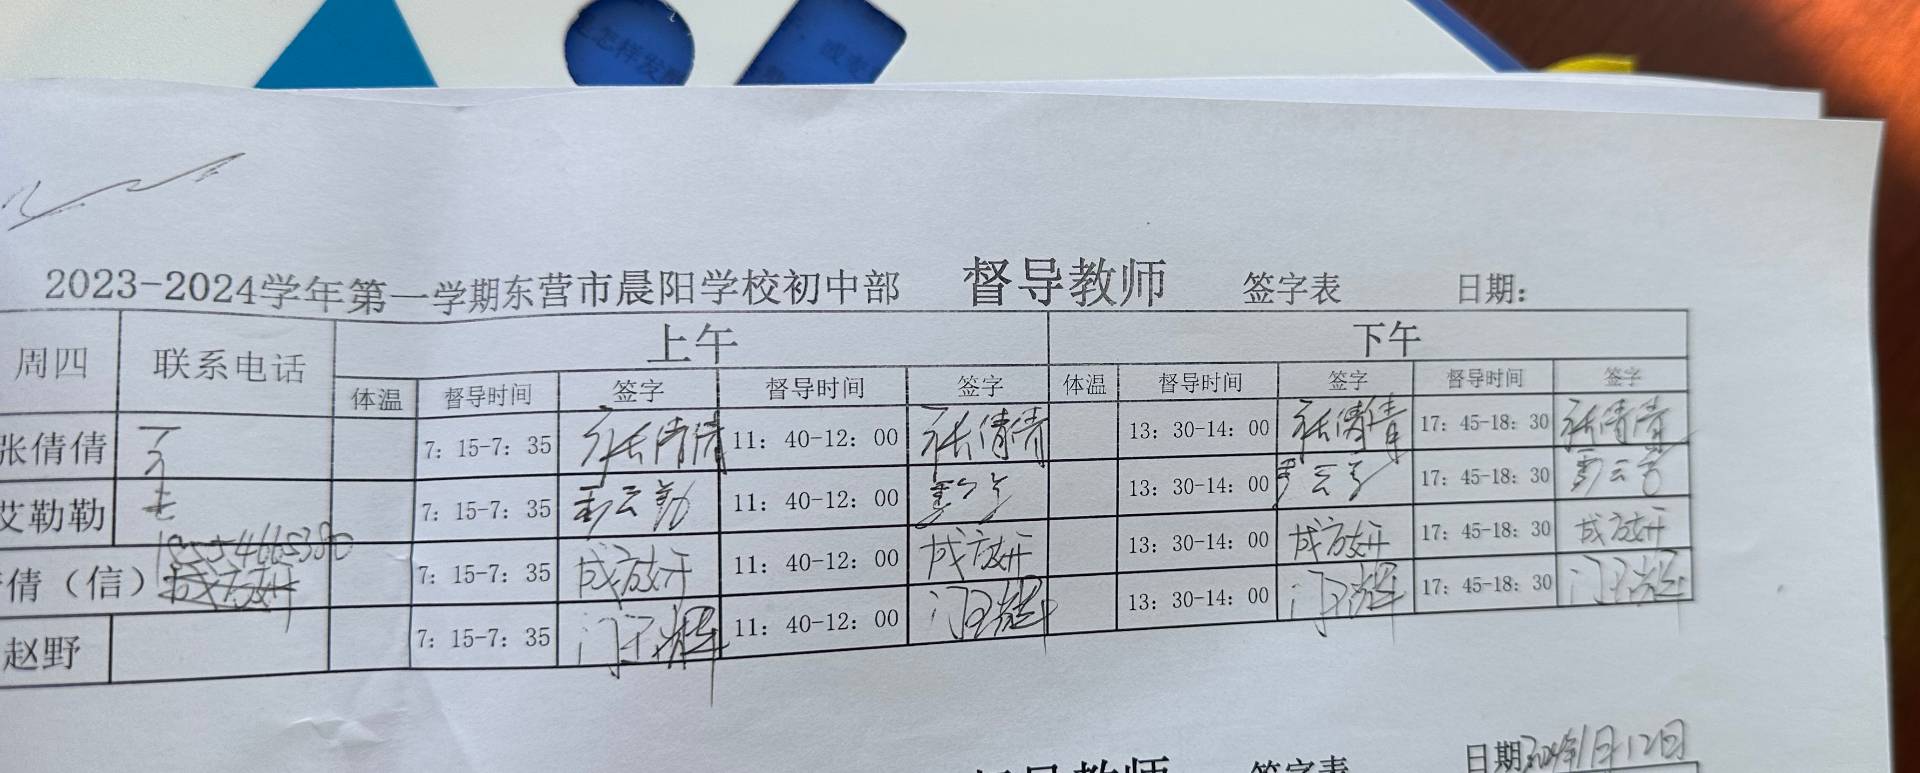 怎样发
或
2023-2024学年第一学期东营市晨阳学校初中部 督导教师 签字表 日期：
周四 联系电话 上午 下午
体温 督导时间 签字 督导时间 签字 体温 督导时间 签字 督导时间 签字
张倩倩 7：15-7：35 张倩倩 11：40-12：00 张倩倩 13：30-14：00 张倩倩 17：45-18：30 张倩倩
艾勒勒 7：15-7：35 11：40-12：00 13：30-14：00 17：45-18：30
倩（信） 18554665380 成放妍 7：15-7：35 成放妍 11：40-12：00 成放妍 13：30-14：00 成放妍 17：45-18：30 成放妍
赵野 7：15-7：35 11：40-12：00 13：30-14：00 17：45-18：30
督导教师 签字表 日期2024年1月12日